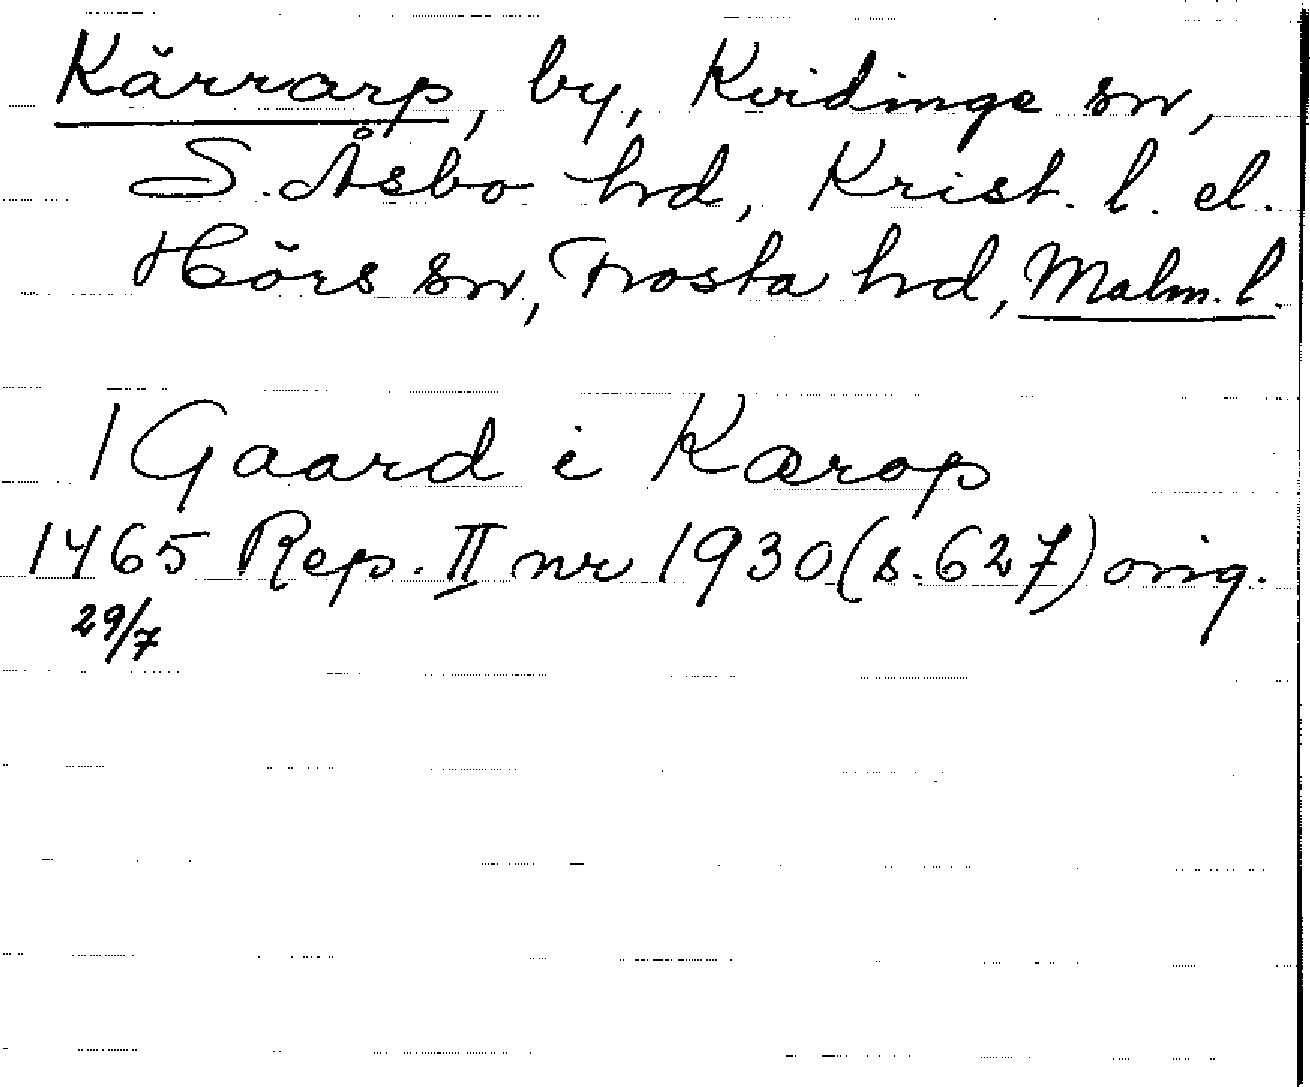 Kärrarp, by, Kvidinge sn,
S. Åsbo hd, Krist. l. el.
Hörs sn, Frosta hd, Malm. l.
1 Gaard i Kærop
1465 Rep. II nr 1930 (s. 627) orig.
29/7